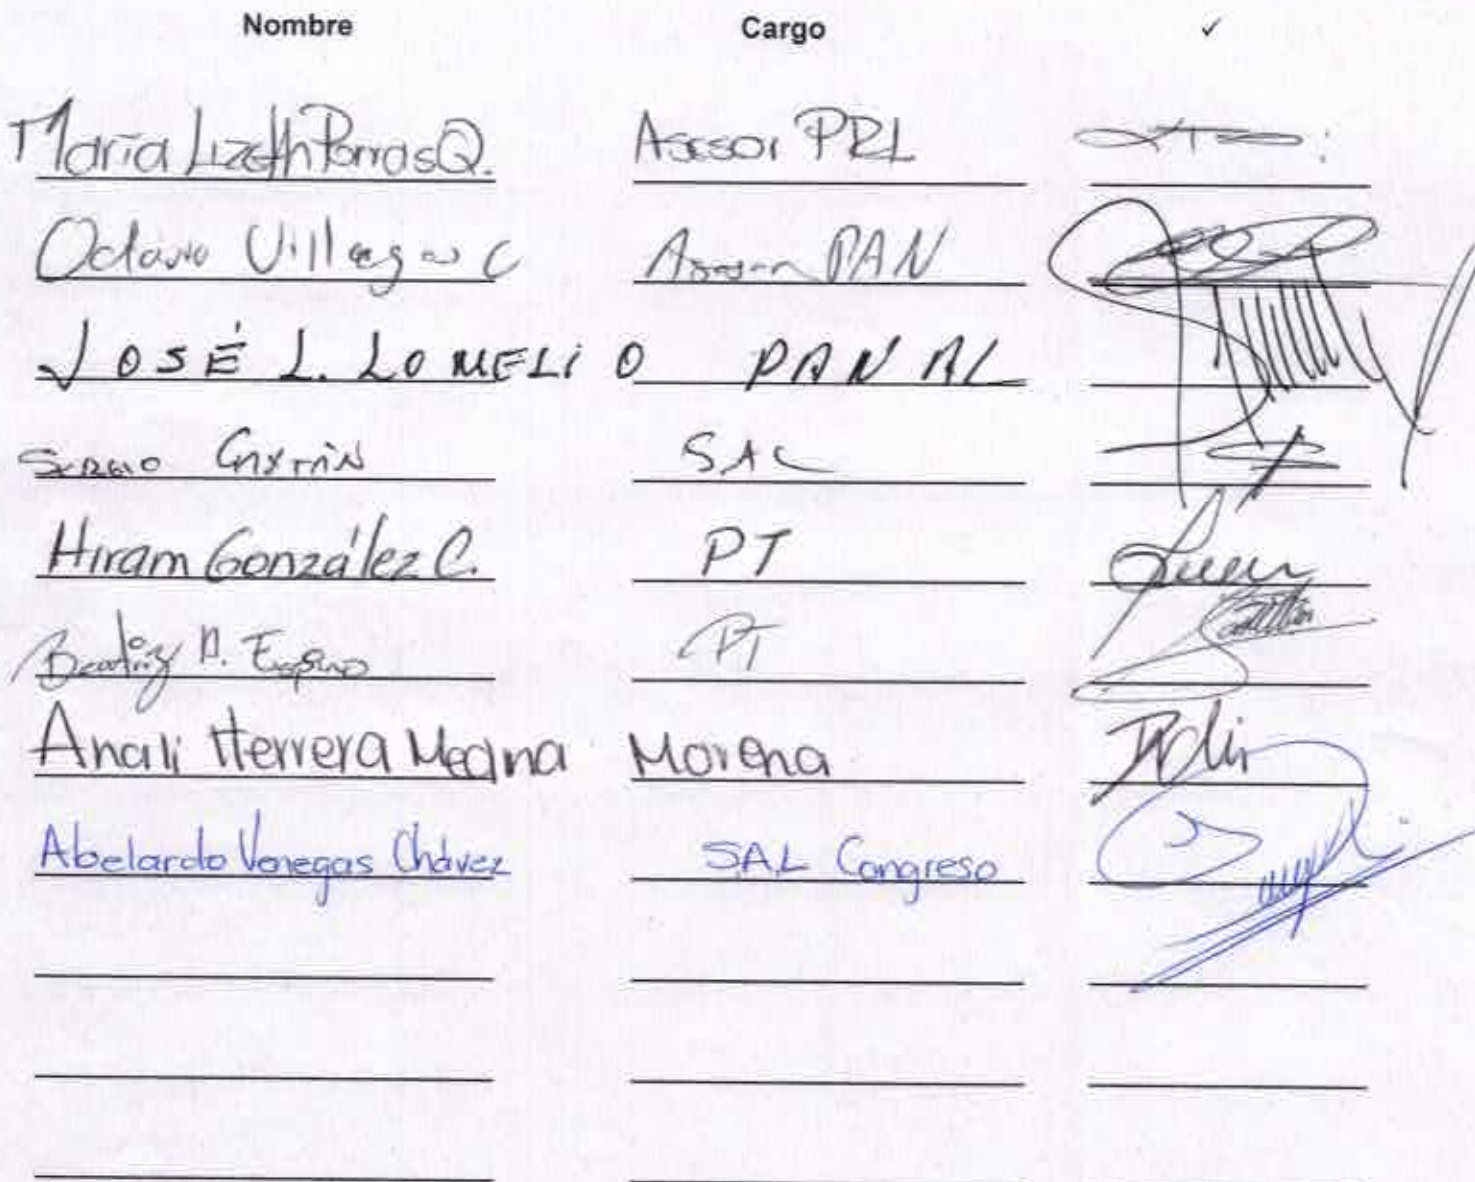 Nombre Cargo ✓
María Lizeth Porras Q. Asesor PRI
Octavio Villegas C Asesor PAN
JOSÉ L. LOMELÍ O PANAL
Sergio Gaytán SAL
Hiram González C. PT
Beatriz A. Espino PT
Anali Herrera Medina Morena
Abelardo Venegas Chávez SAL Congreso